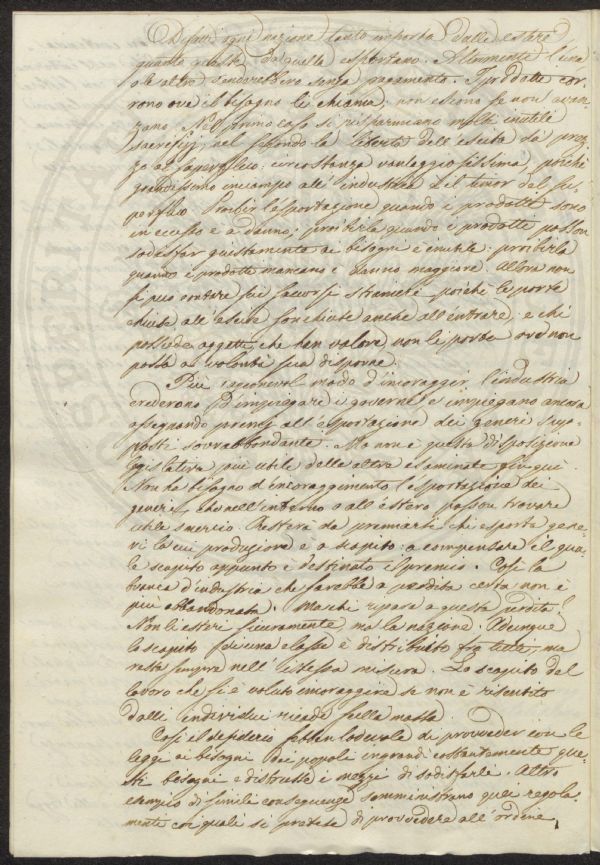 Difatti ogni nazione tanto importa dall'estero
quanto questo da quella esportano. Altrimenti l'una
o le altre senza pagamento. I prodotti cor-
rono ove il bisogno li chiama; non escono se non avan-
zano. Nel primo caso si risparmiano molti inutili
sacrifizj, nel secondo la libertà dell'escita dà prez-
zo al superfluo: circostanza vantaggiosissima, poichè
grandissimo inciampo all'industria è il timor del su-
perfluo. Proibir l'esportazione quando i prodotti sono
in eccesso è a danno; proibirla quando i prodotti posson
sodisfar giustamente ai bisogni è inutile: proibirla
quando i prodotti mancano è danno maggiore. Allora non
si può contare sui soccorsi stranieri, poichè le porte
chiuse all'escire son chiuse anche all'entrare, e chi
possiede oggetti, che han valore, non li porta ove non
possa a volontà sua disporne.
Più ragionevol modo d'incoraggir l'industria
crederono d'impiegare i governi e impiegano ancora
assegnando premj all'esportazione dei generi sup-
posti sovrabbondanti. Ma non è questa disposizione
legislativa più utile delle altre esaminate fin quì.
Non ha bisogno d'incoraggimento l'esportazione dei
generi, che nell'interno o all'estero posson trovare
utile smercio. Resterà da premiarsi chi esporta gene-
ri la cui produzione è a scapito: a compensare il qua-
le scapito appunto è destinato il premio. Così la
branca d'industria che sarebbe a perdita certa non è
più abbandonata. Ma chi ripara a questa perdita?
Non li esteri sicuramente, ma la nazione. Adunque
lo scapito di una classe è distribuito fra tutte, ma
resta sempre nell'istessa misura. Lo scapito del
lavoro che si è voluto incoraggire se non è risentito
dalli individui ricade sulla massa.
Così il desiderio sebben lodevole di provveder con le
leggi ai bisogni dei popoli ingrandì costantemente que-
sti bisogni e distrusse i mezzi di sodisfarli. Altro
esempio di simili conseguenze somministrano quei regola-
menti coi quali si pretese di provvedere all'ordine